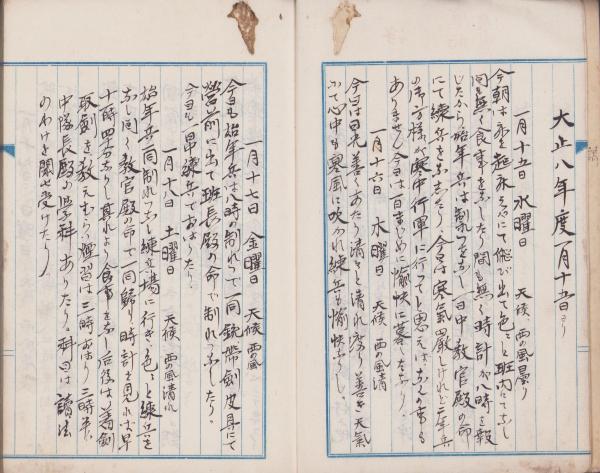 大正八年度一月十五日ヨリ
一月十五日 水曜日 天候 西の風曇り
今朝は
間も無く食事をなしたり間も無く時計が八時を報
じたから始年兵は制れつをなし一日中教官殿の命
にて練兵をなしたり、今日は寒氣厳しけれど二年兵
の御方様が寒中行軍に行つてと思えばなんの事も
ありません今日は一日まじめに愉快に暮したなり、
一月十六日 木曜日 天候 西の風清
今日は日光善くあたり清々と清れ渡り善き天氣
にて心中も寒風に吹かれ練兵も愉快なりし。
一月十七日 金曜日 天候 西の風
今日も始年兵は八時の制れつで一同銃帯劍皮具にて
營前に出て班長殿の命で制れつなしたり。
今日も昴練兵でおはつた、
一月十八日 土曜日 天候 西の風清れ
始年兵一同制れつなし練兵場に行き色々と練兵を
なし間も教官殿の命で一同歸り時計を見れば早
十時四十分なりし其れより食事をなし后後は着劍
取劍を教えもらい演習は三時おはり、三時半、
中隊長殿の學科ありたり。科目は讀法
のわけを聞せ受けたり、